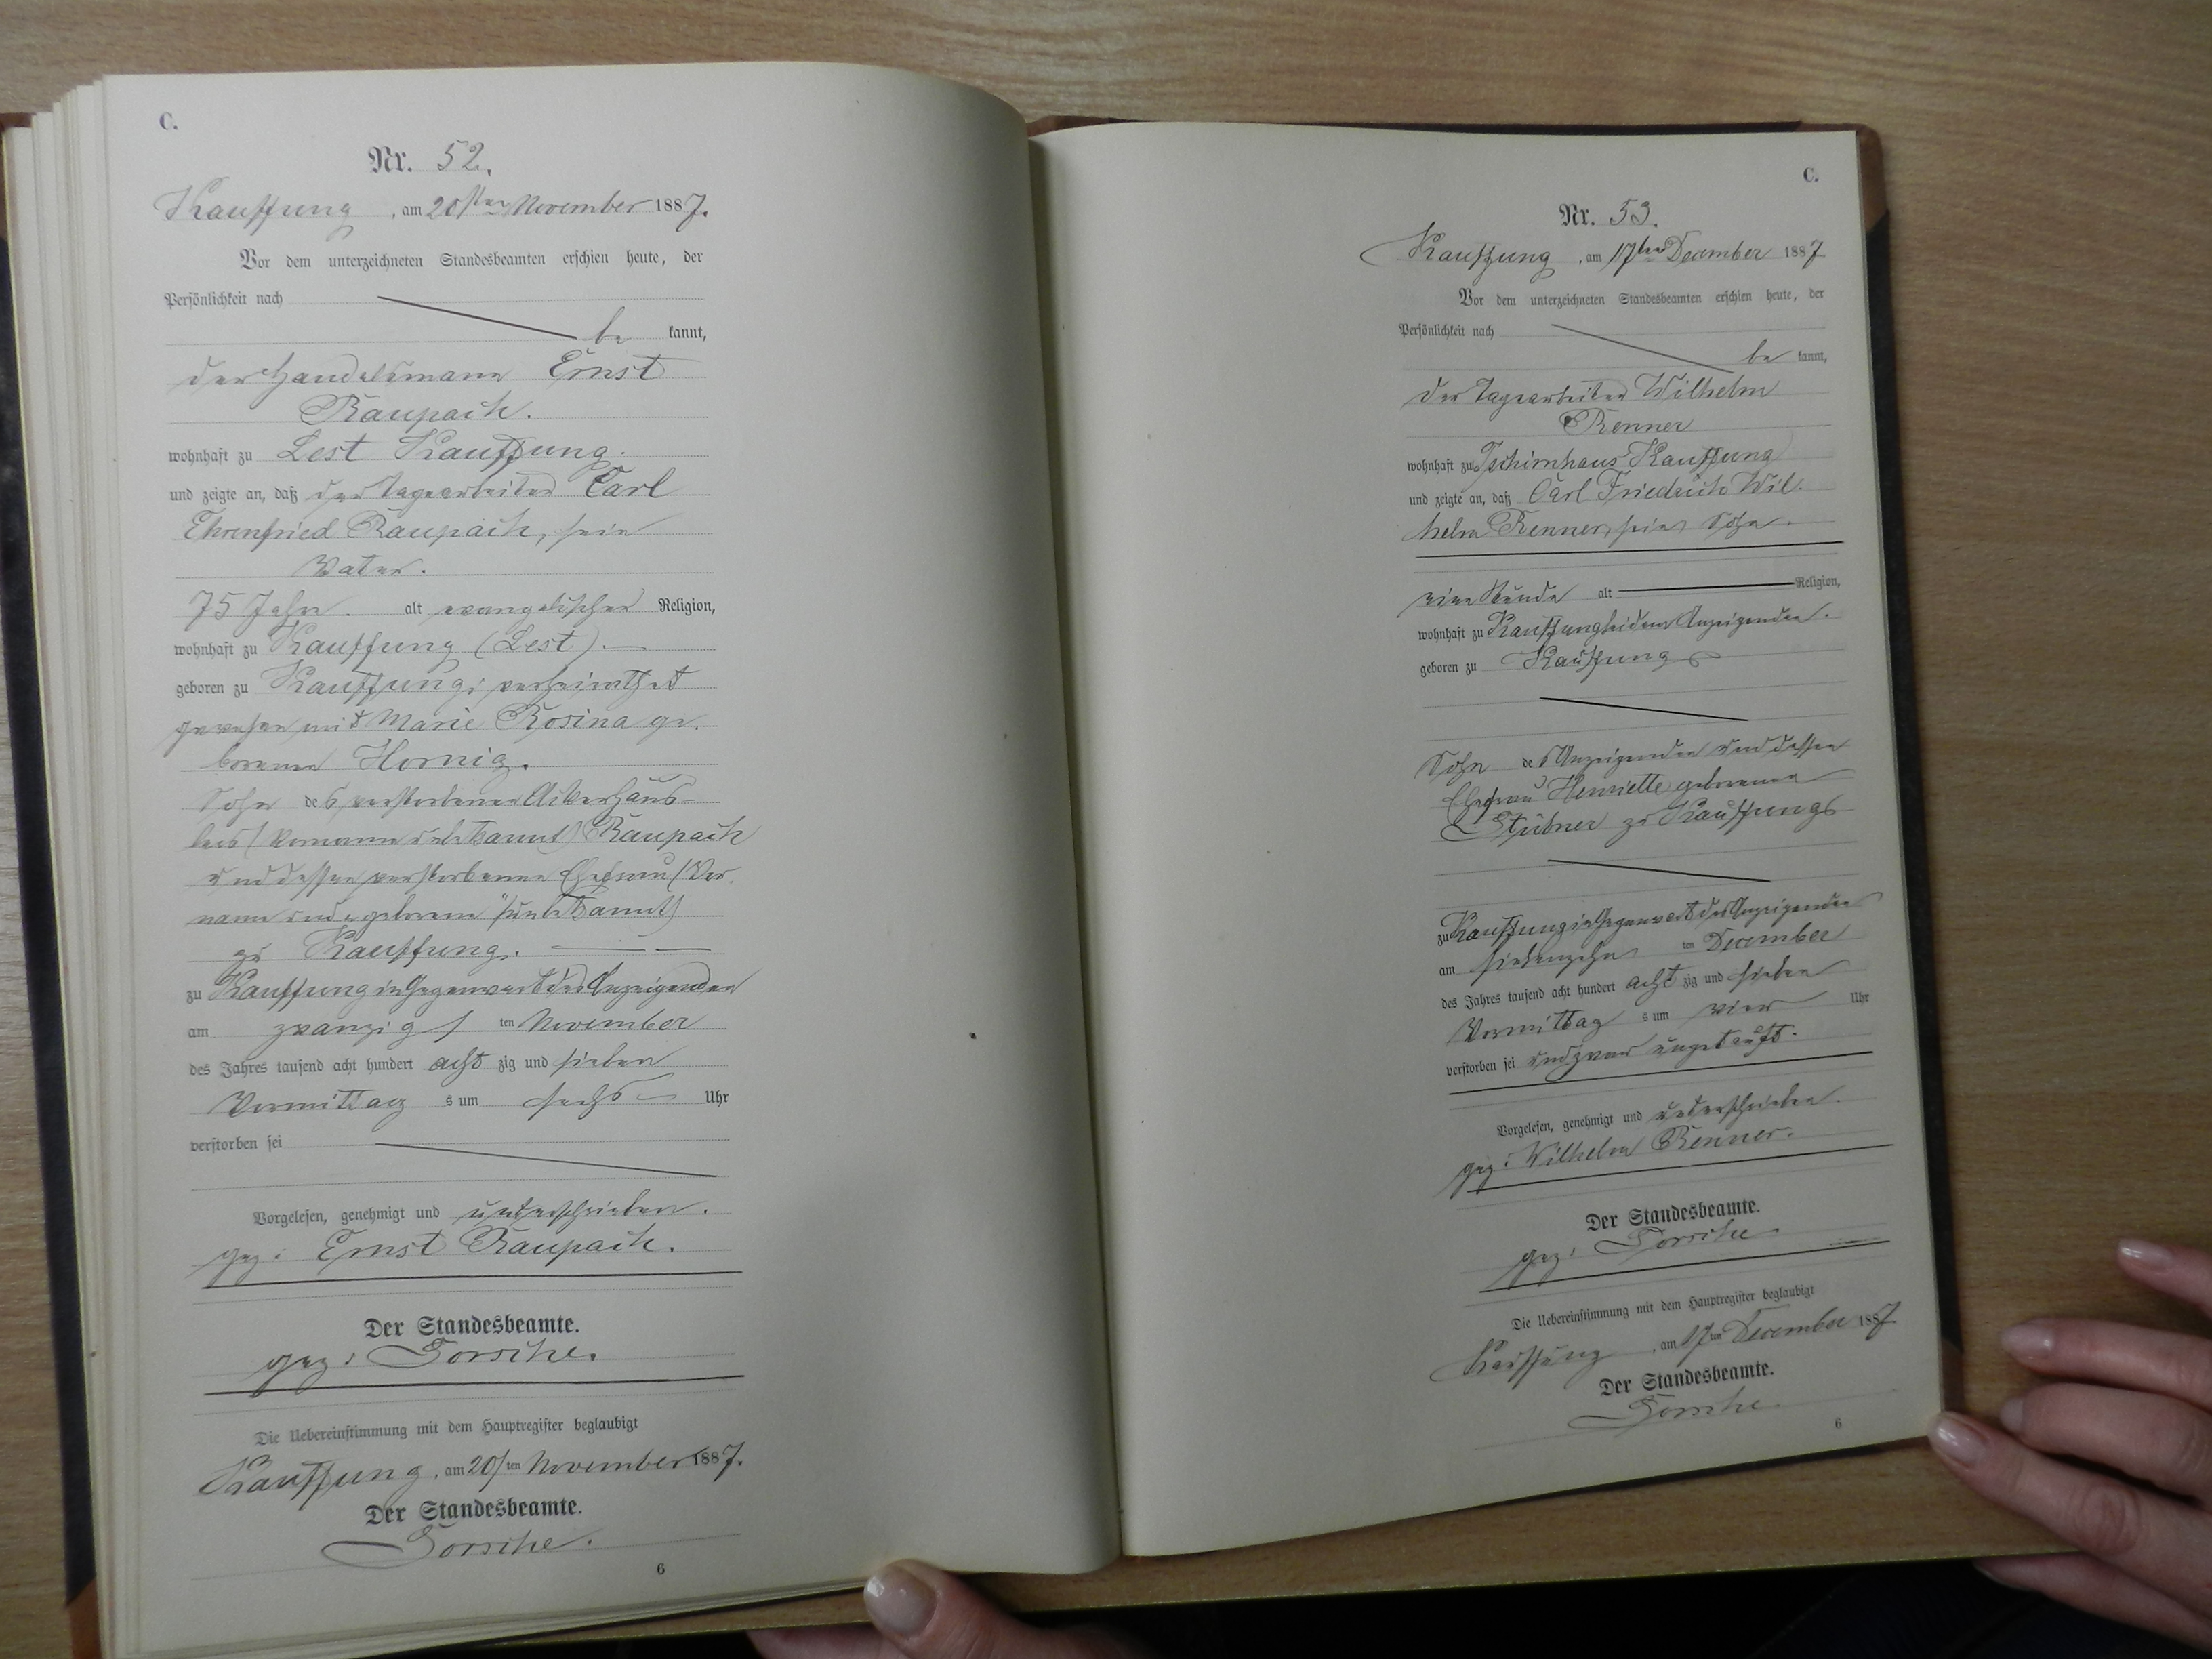 C.
Nr. 52.
Kauffung, am 20sten November 1887.
Vor dem unterzeichneten Standesbeamten erschien heute, der
Persönlichkeit nach
be kannt,
der Handelsmann Ernst
Raupach.
wohnhaft zu Lest Kauffung.
und zeigte an, daß der Tagearbeiter Carl
Ehrenfried Raupach, sein
Vater.
75 Jahr. alt evangelischer Religion,
wohnhaft zu Kauffung (Lest).
geboren zu Kauffung; verheirathet
gewesen mit Marie Rosina ge-
borenen Hornig.
Sohn des verstorbenen Ackerhäus-
lers (Vorname unbekannt) Raupach
und dessen verstorbenen Ehefrau (Vor-
name und „geborene“ unbekannt)
zu Kauffung.
zu Kauffung in Gegenwart des Anzeigenden
am zwanzigs ten November
des Jahres tausend acht hundert acht zig und sieben
Vormittag s um sechs Uhr
verstorben sei
Vorgelesen, genehmigt und unterschrieben.
gez: Ernst Raupach.
Der Standesbeamte.
gez: Gorsche.
Die Uebereinstimmung mit dem Hauptregister beglaubigt
Kauffung, am 20sten November 1887.
Der Standesbeamte.
Gorsche.
6
C.
Nr. 53.
Kauffung, am 17ten December 1887
Vor dem unterzeichneten Standesbeamten erschien heute, der
Persönlichkeit nach
be kannt,
der Tagearbeiter Wilhelm
Renner
wohnhaft zu Tschirnhaus Kauffung
und zeigte an, daß Carl Friedrich Wil-
helm Renner, sein Sohn.
eine Stunde alt Religion,
wohnhaft zu Kauffung bei dem Anzeigenden.
geboren zu Kauffung
Sohn des Anzeigenden und dessen
Ehefrau Henriette geborenen
Stübner zu Kauffung
zu Kauffung in Gegenwart des Anzeigenden
am siebenzehn ten December
des Jahres tausend acht hundert acht zig und sieben
Vormittag s um vier Uhr
verstorben sei und zwar ungetauft.
Vorgelesen, genehmigt und unterschrieben.
gez: Wilhelm Renner.
Der Standesbeamte.
gez: Gorsche
Die Uebereinstimmung mit dem Hauptregister beglaubigt
Kauffung, am 17ten December 1887
Der Standesbeamte.
Gorsche.
6